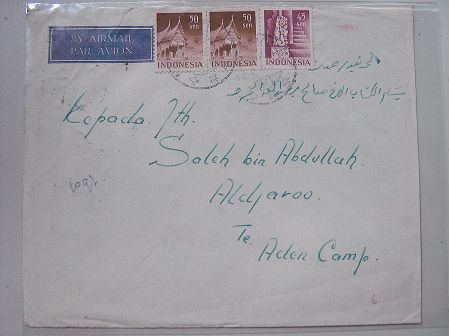 BY AIRMAIL
PAR AVION
50 sen
50 sen
45 sen
INDONESIA
INDONESIA
INDONESIA
Kepada Jth.
Saleh bin Abdullah.
Aldjaroo.
Te
Aden Camp.
1601
6